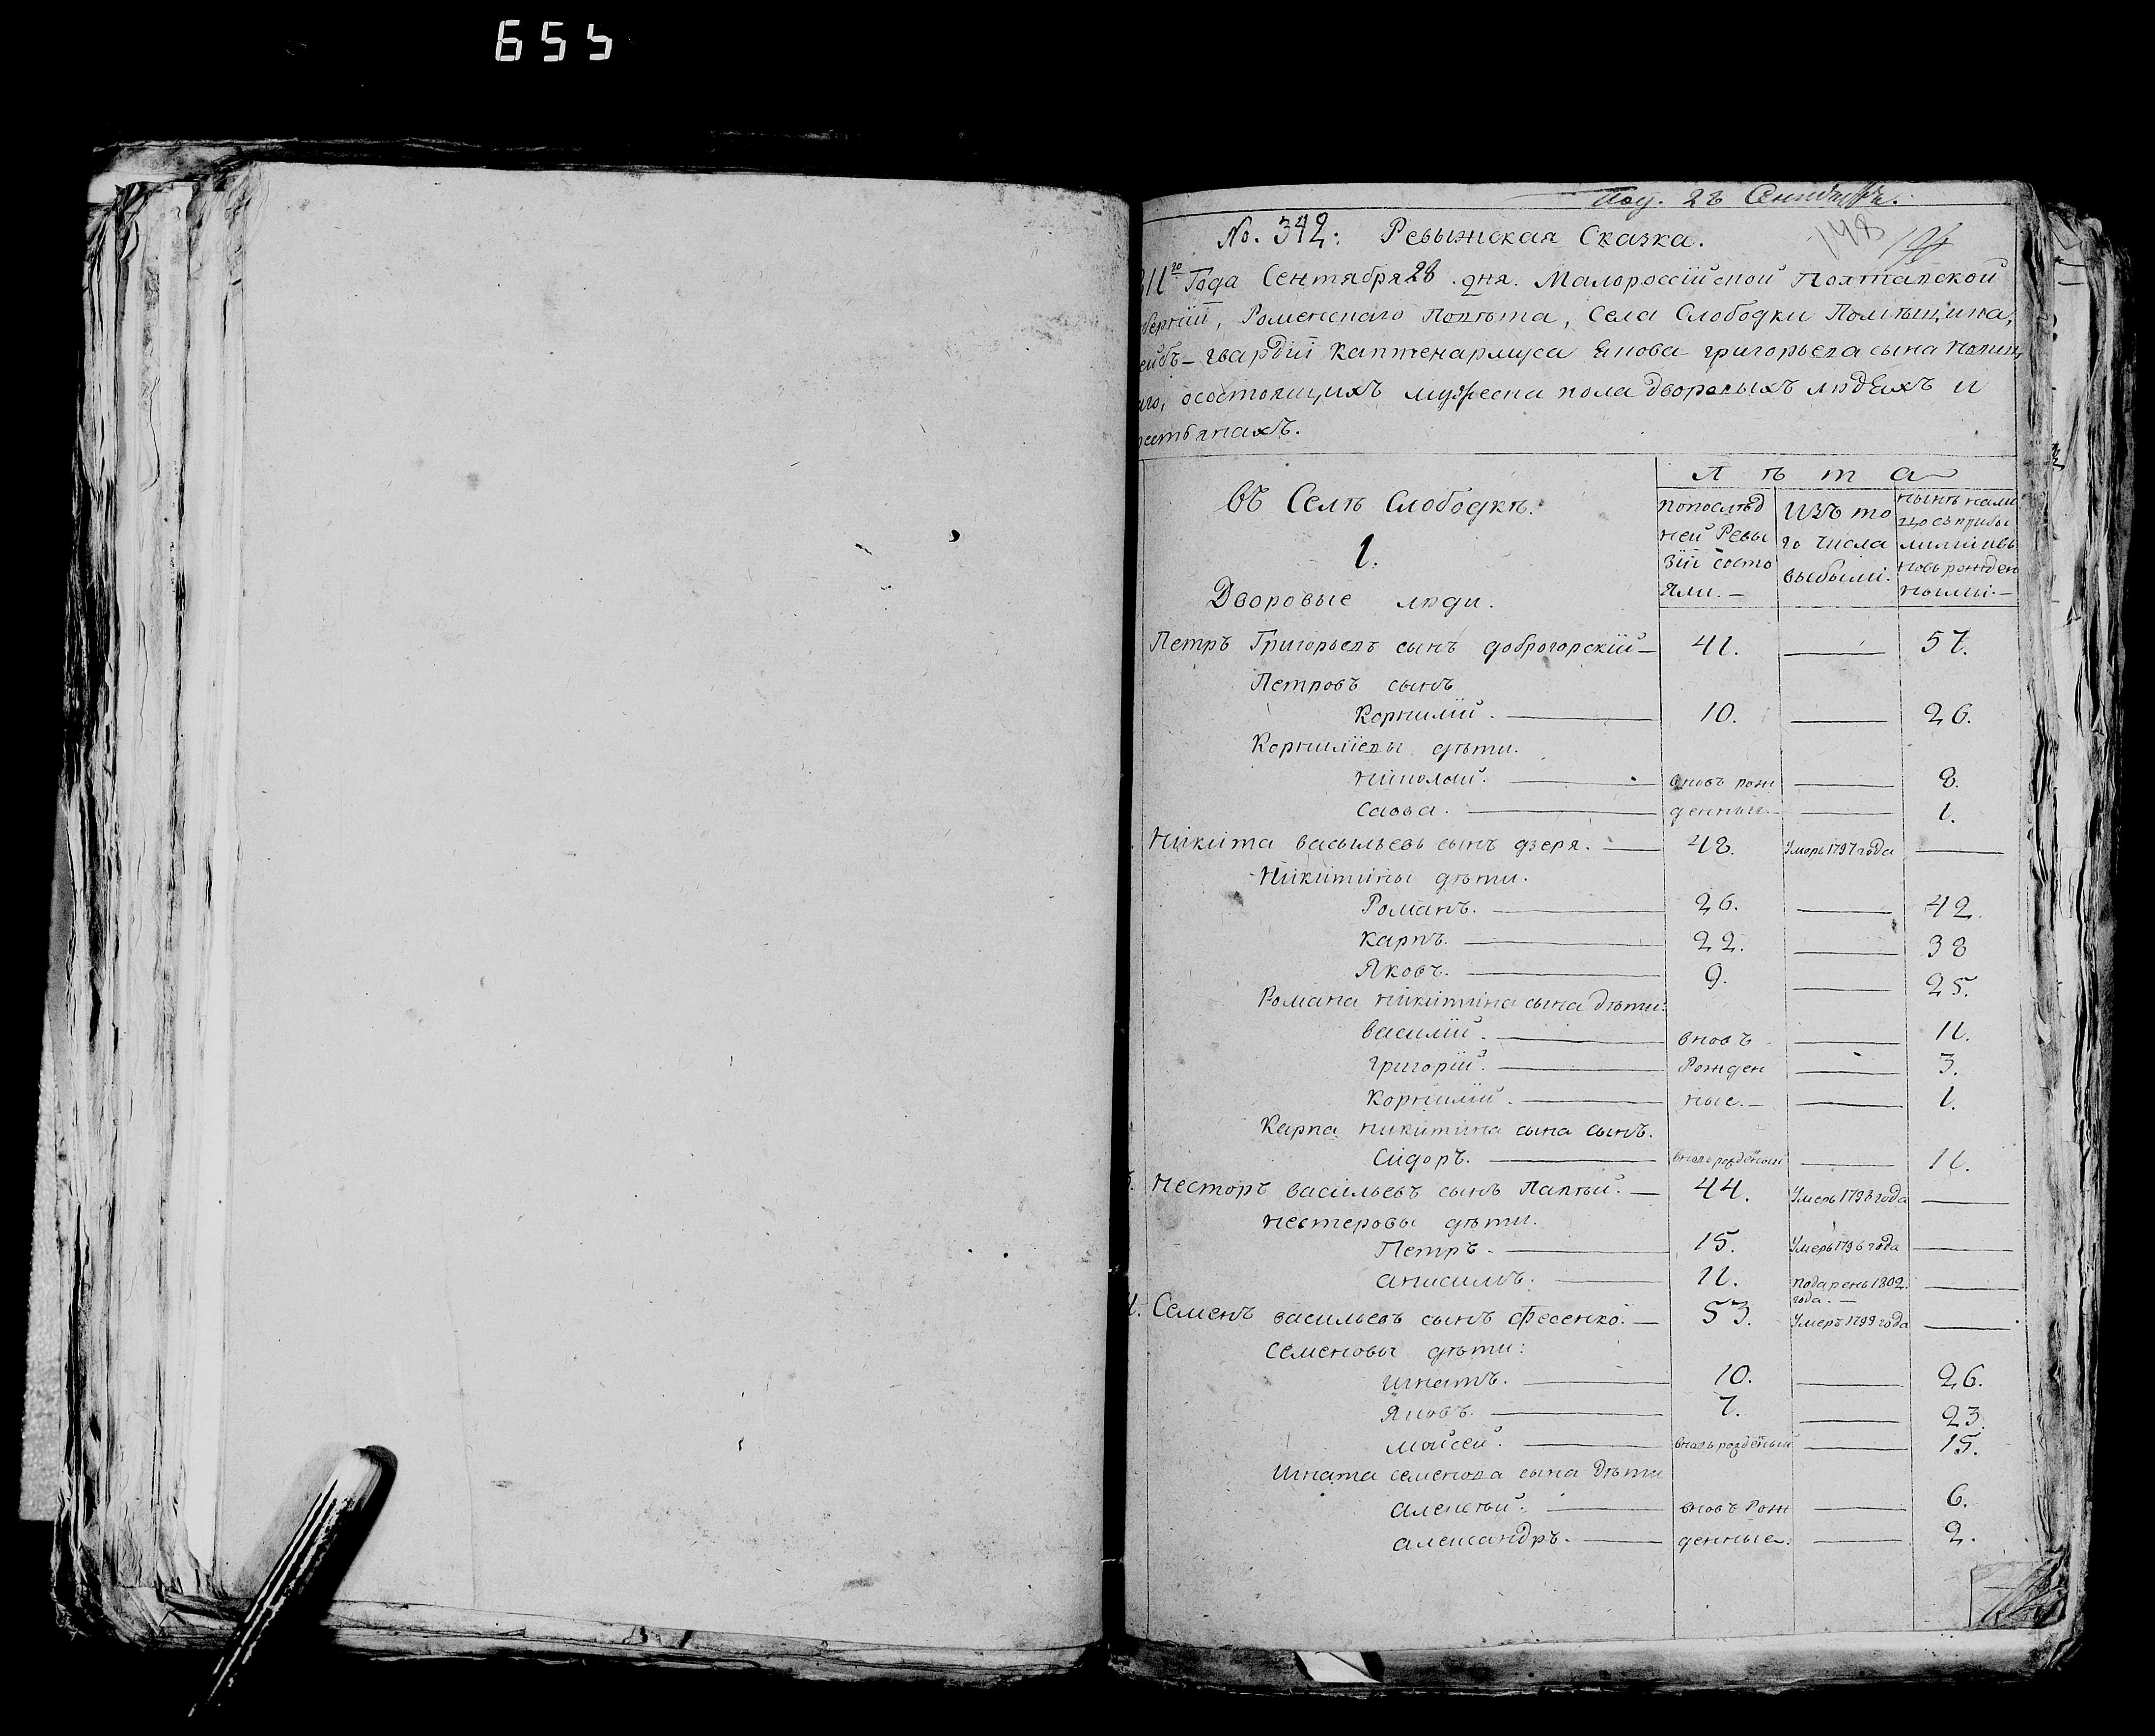 655
Под. 28 Сентября.
No. 342: Ревыжская Сказка.
148
811го Года Сентября 28 дня. Малороссїйской Полтавской
бернїи, Роменскаго Поѣта, Села Слободки
ейбъ-гвардїи каптенармуса Якова григорьева сына
аго, осостоящихъ мужеска пола дворовыхъ людѣхъ и
рестьянахъ.
Лѣта
въ Селѣ Слободкѣ.
1.
Дворовые люди.
попослѣд
ней Ревы
зїи состо
яли.—
Изъ то
го числа
выбыли.
нынѣ нали
цо съ прибы
лыми ивъ
новь рожден
ными.—
Петръ Григорьевъ сынъ доброгорскїй— 41. — 57.
Петровъ сынъ
Корнилїй. — 10. — 26.
Корнилїевы дѣти.
Николай. — вновъ рож — 8.
Савва. — денныи — 1.
Никита васильевъ сынъ дзеря. — 48. Умеръ 1797 года —
Никитины дѣти.
Романъ. — 26. — 42.
Карпъ. — 22. — 38
Яковъ. — 9. — 25.
Романа никитина сына дѣти:
василїй. — вновъ — 11.
григорїй. — Рожден — 3.
Корнилїй. — ные.— — 1.
Карпа никитина сына сынъ.
Сидоръ. — вновь рожденый — 11.
Несторъ васильевъ сынъ Лаптїй. — 44. Умеръ 1798 года —
нестеровы дѣти.
Петръ. — 15. Умеръ 1796 года —
анисимъ. — 11. подарень 1802.
года.— —
4. Семенъ васильевъ сынъ Фесенко. — 53. Умеръ 1799 года —
Семеновы дѣти:
игнатъ. — 10. — 26.
Яковъ. — 7. — 23.
моисей. — вновь рожденый — 15.
Игната семенова сына дѣти
алексѣй. — вновъ Рож — 6.
александръ. — денные. — 2.